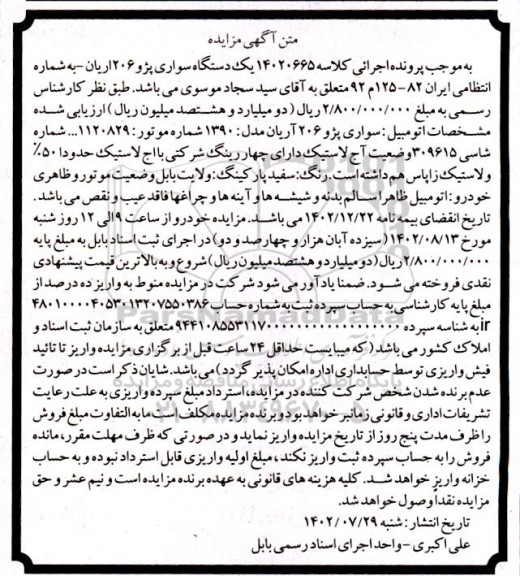 متن آگهی مزایده
به موجب پرونده اجرائی کلاسه ۱۴۰۲۰۶۶۵ یک دستگاه سواری پژو ۲۰۶ اریان -به شماره
انتظامی ایران ۸۲-۱۲۵م ۹۲ متعلق به آقای سید سجاد موسوی می باشد. طبق نظر کارشناس
رسمی به مبلغ ۲/۸۰۰/۰۰۰/۰۰۰ ریال (دو میلیارد و هشتصد میلیون ریال) ارزیابی شده
مشخصات اتومبیل: سواری پژو ۲۰۶ آریان مدل: ۱۳۹۰ شماره موتور: ۱۱۲۰۸۲۹... شماره
شاسی ۳۰۹۶۱۵ وضعیت آج لاستیک دارای چهار رینگ شرکتی با اج لاستیک حدودا ۵۰٪
ولاستیک زاپاس هم داشته است. رنگ: سفید پارکینگ: ولایت بابل وضعیت موتور و ظاهری
خودرو: اتومبیل ظاهرا سالم بدنه و شیشه ها و آینه ها و چراغها فاقد عیب و نقص می باشد.
تاریخ انقضای بیمه نامه ۱۴۰۲/۱۲/۲۲ می باشد. مزایده خودرو از ساعت ۹ الی ۱۲ روز شنبه
مورخ ۱۴۰۲/۰۸/۱۳ (سیزده آبان هزار و چهارصد و دو) در اجرای ثبت اسناد بابل به مبلغ پایه
۲/۸۰۰/۰۰۰/۰۰۰ ریال (دو میلیارد و هشتصد میلیون ریال) شروع و به بالاترین قیمت پیشنهادی
نقدی فروخته می شود. ضمنا یادآور می شود شرکت در مزایده منوط به واریز ده درصد از
مبلغ پایه کارشناسی به حساب سپرده ثبت به شماره حساب ۴۸۰۱۰۰۰۰۴۰۵۳۰۱۳۲۰۷۵۵۰۳۸۶
ir به شناسه سپرده متعلق به سازمان ثبت اسناد و
املاک کشور می باشد (که میبایست حداقل ۲۴ ساعت قبل از برگزاری مزایده واریز تا تائید
فیش واریزی توسط حسابداری اداره امکان پذیر گردد) می باشد. شایان ذکر است در صورت
عدم برنده شدن شخص شرکت کننده در مزایده، استرداد مبلغ سپرده واریزی به علت رعایت
تشریفات اداری و قانونی زمانبر خواهد بود و برنده مزایده مکلف است مابه التفاوت مبلغ فروش
را ظرف مدت پنج روز از تاریخ مزایده واریز نماید و در صورتی که ظرف مهلت مقرر، مانده
فروش را به حساب سپرده ثبت واریز نکند، مبلغ اولیه واریزی قابل استرداد نبوده و به حساب
خزانه واریز خواهد شد. کلیه هزینه های قانونی به عهده برنده مزایده است و نیم عشر و حق
مزایده نقداً وصول خواهد شد.
تاریخ انتشار: شنبه ۱۴۰۲/۰۷/۲۹
علی اکبری - واحد اجرای اسناد رسمی بابل